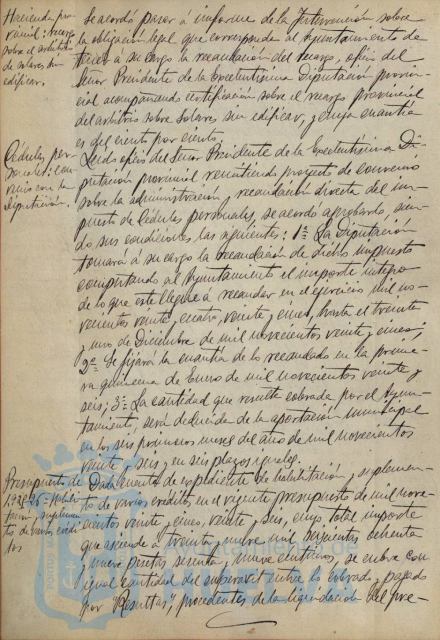 Hacienda pro-
vincial: recargo
sobre el arbitrio
de solares sin
edificar.
Se acordó pasar a informe de la Intervención sobre
la obligación legal que corresponda al Ayuntamiento de
tener a su cargo la recaudación del recargo, oficio del
Señor Presidente de la Excelentísima Diputación provin-
cial acompañando certificación sobre el recargo provincial
del arbitrio sobre solares sin edificar, y cuya cuantía
es del ciento por ciento.
Cédulas per-
sonales: con-
venio con la
Diputación.
Leido oficio del Señor Presidente de la Excelentísima Di-
putación provincial remitiendo proyecto de convenio
sobre la administración y recaudación directa del im-
puesto de Cédulas personales, se acordó aprobarlo, sien-
do sus condiciones las siguientes: 1ª La Diputación
tomará a su cargo la recaudación de dicho impuesto
computando al Ayuntamiento el importe íntegro
de lo que este llegue a recaudar en el ejercicio mil no-
vecientos veinte y cuatro, veinte y cinco, hasta el treinta
y uno de Diciembre de mil novecientos veinte y cinco;
2ª Se fijará la cuantía de lo recaudado en la prime-
ra quincena de Enero de mil novecientos veinte y
seis; 3ª La cantidad que resulte cobrada por el Ayun-
tamiento, será deducida de la aportación municipal
en los seis primeros meses del año de mil novecientos
veinte y seis y en seis plazos iguales.
Presupuesto de
1925-26: habili-
tación y suplemen
to de varios crédi-
tos
Dada cuenta de expediente de habilitación y suplemen-
to de varios créditos en el vigente presupuesto de mil nove-
cientos veinte y cinco, veinte y seis, cuyo total importe
que asciende a treinta y nueve mil seiscientas ochenta
y nueve pesetas sesenta y nueve céntimos, se cubre con
igual cantidad del superavit entre lo cobrado y pagado
por "Resultas" procedentes de la liquidación del pre-